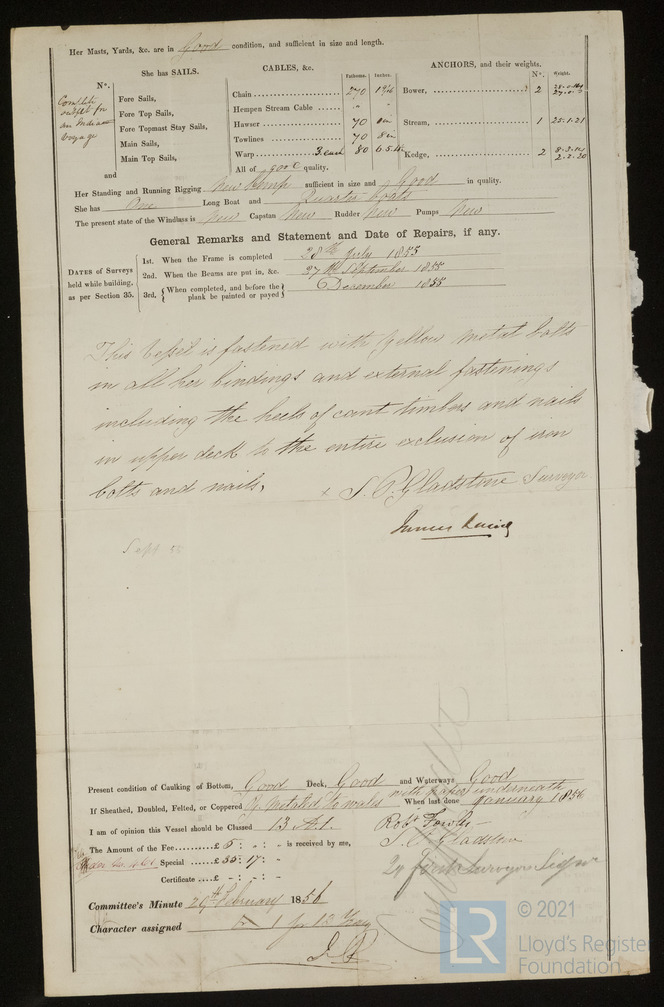 Her Masts, Yards, &c. are in Good condition, and sufficient in size and length.
She has SAILS. CABLES, &c. Fathoms. Inches. ANCHORS, and their weights. N°. Weight.
N°.
Complete outfit for an Indian Voyage
Fore Sails,
Fore Top Sails,
Fore Topmast Stay Sails,
Main Sails,
Main Top Sails,
and
Chain 270
Hempen Stream Cable " "
Hawser 70
Towlines 70 8 in
Warp 3 each 80
All of good quality.
Bower, 2
Stream, 1 25.1.21
Kedge, 2
Her Standing and Running Rigging New Hemp sufficient in size and Good in quality.
She has One Long Boat and Quarter boats
The present state of the Windlass is New Capstan New Rudder New Pumps New
General Remarks and Statement and Date of Repairs, if any.
DATES of Surveys held while building, as per Section 35.
1st. When the Frame is completed 28th July 1855
2nd. When the Beams are put in, &c. 27th September 1855
3rd. { When completed, and before the plank be painted or payed } 6 December 1855
This Vessel is fastened with Yellow metal bolts
in all her bindings and external fastenings
including the heels of cant timbers and nails
in upper deck to the entire exclusion of iron
bolts and nails, x J. P. Gladstone Surveyor
James Laing
Sept 55
Present condition of Caulking of Bottom, Good Deck, Good and Waterways Good
with paper underneath
If Sheathed, Doubled, Felted, or Coppered Y. Metaled to wales When last done January 1856
I am of opinion this Vessel should be Classed 13 A.1. Robt Fowler
The Amount of the Fee £5 : - : - is received by me, J. P. Gladstone
Special £35 : 17 : -
Certificate £ - : - : -
Committee's Minute 29th February 1856
Character assigned 1 for 13 Years
© 2021
LR
Lloyd's Register
Foundation